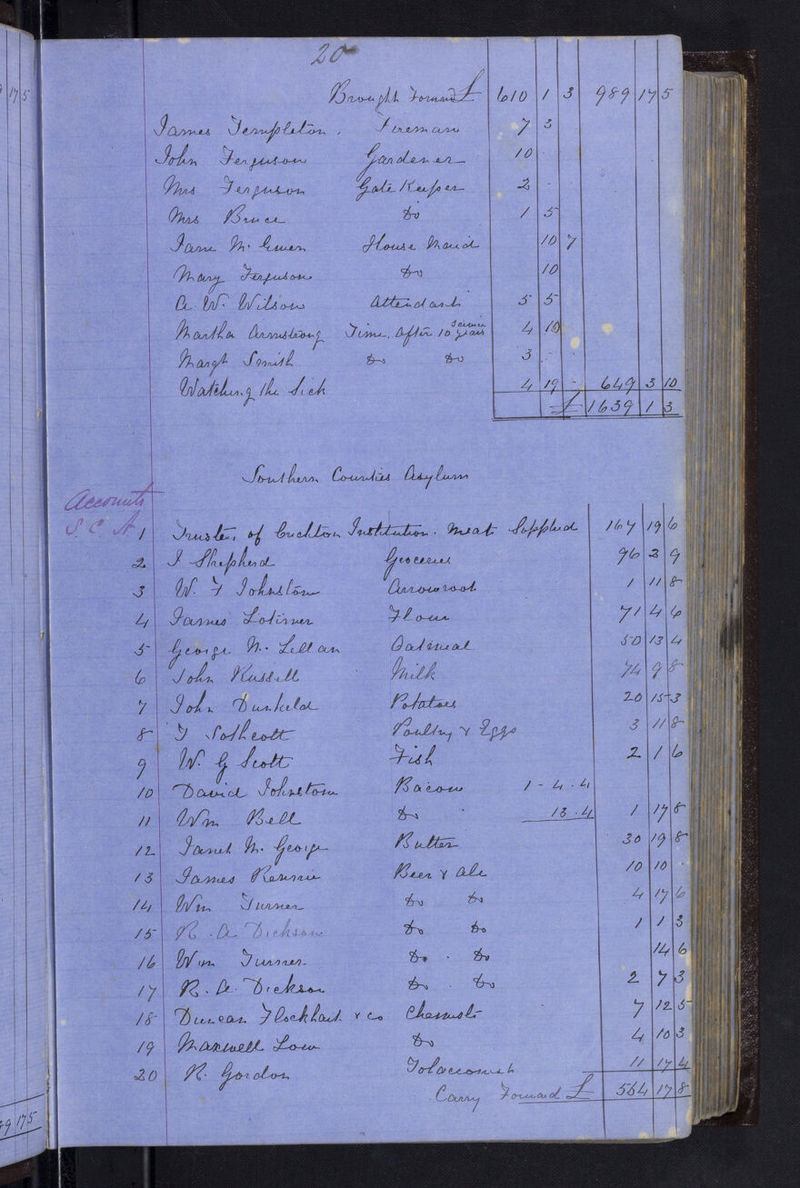 20
Brought Forward £ 610 1 3 989 17 5
James Templeton. Fireman 7 3
John Ferguson Gardener 10
Mrs Ferguson Gate Keeper 2 -
Mrs Bruce Do 1 5
Jane Mc Ewen House Maid 10 7
Mary Ferguson Do 10
A. W. Wilson Attendant 5 5
Martha Armstrong Time. After 10 years Service 4 10
Margt Smith Do Do 3
Watching the Sick 4 19 - 649 3 10
£ 1639 1 3
Southern Counties Asylum
Accounts
S. C. A
1 Trustees of Crichton Institution. Meat Supplied 167 19 6
2 J Shepherd Groceries 96 3 9
3 W. F Johnstone Arrowroot 1 11 8
4 James Latimer Flour 71 4 6
5 George Mc Lellan Oatmeal 50 13 4
6 John Russell Milk 74 9 8
7 John Dunkeld Potatoes 20 15 3
8 Southcott Poultry & Eggs 3 11 8
9 W. G Scott Fish 2 1 6
10 David Johnstone Bacon 1 - 4 . 4
11 Wm Bell Do 13 . 4 1 17 8
12 Janet Mc George Butter 30 19 8
13 James Rennie Beer & Ale 10 10
14 Wm Turner Do Do 4 17 6
15 R. A. Dickson Do Do 1 1 3
16 Wm Turner Do . Do 14 6
17 R. A. Dickson Do . Do 2 7 3
18 Duncan Flockhart & Co Chemists 7 12 5
19 Maxwell Low Do 4 10 3
20 R. Gordon Tobacconist 11 17 4
Carry Forward £ 564 17 8